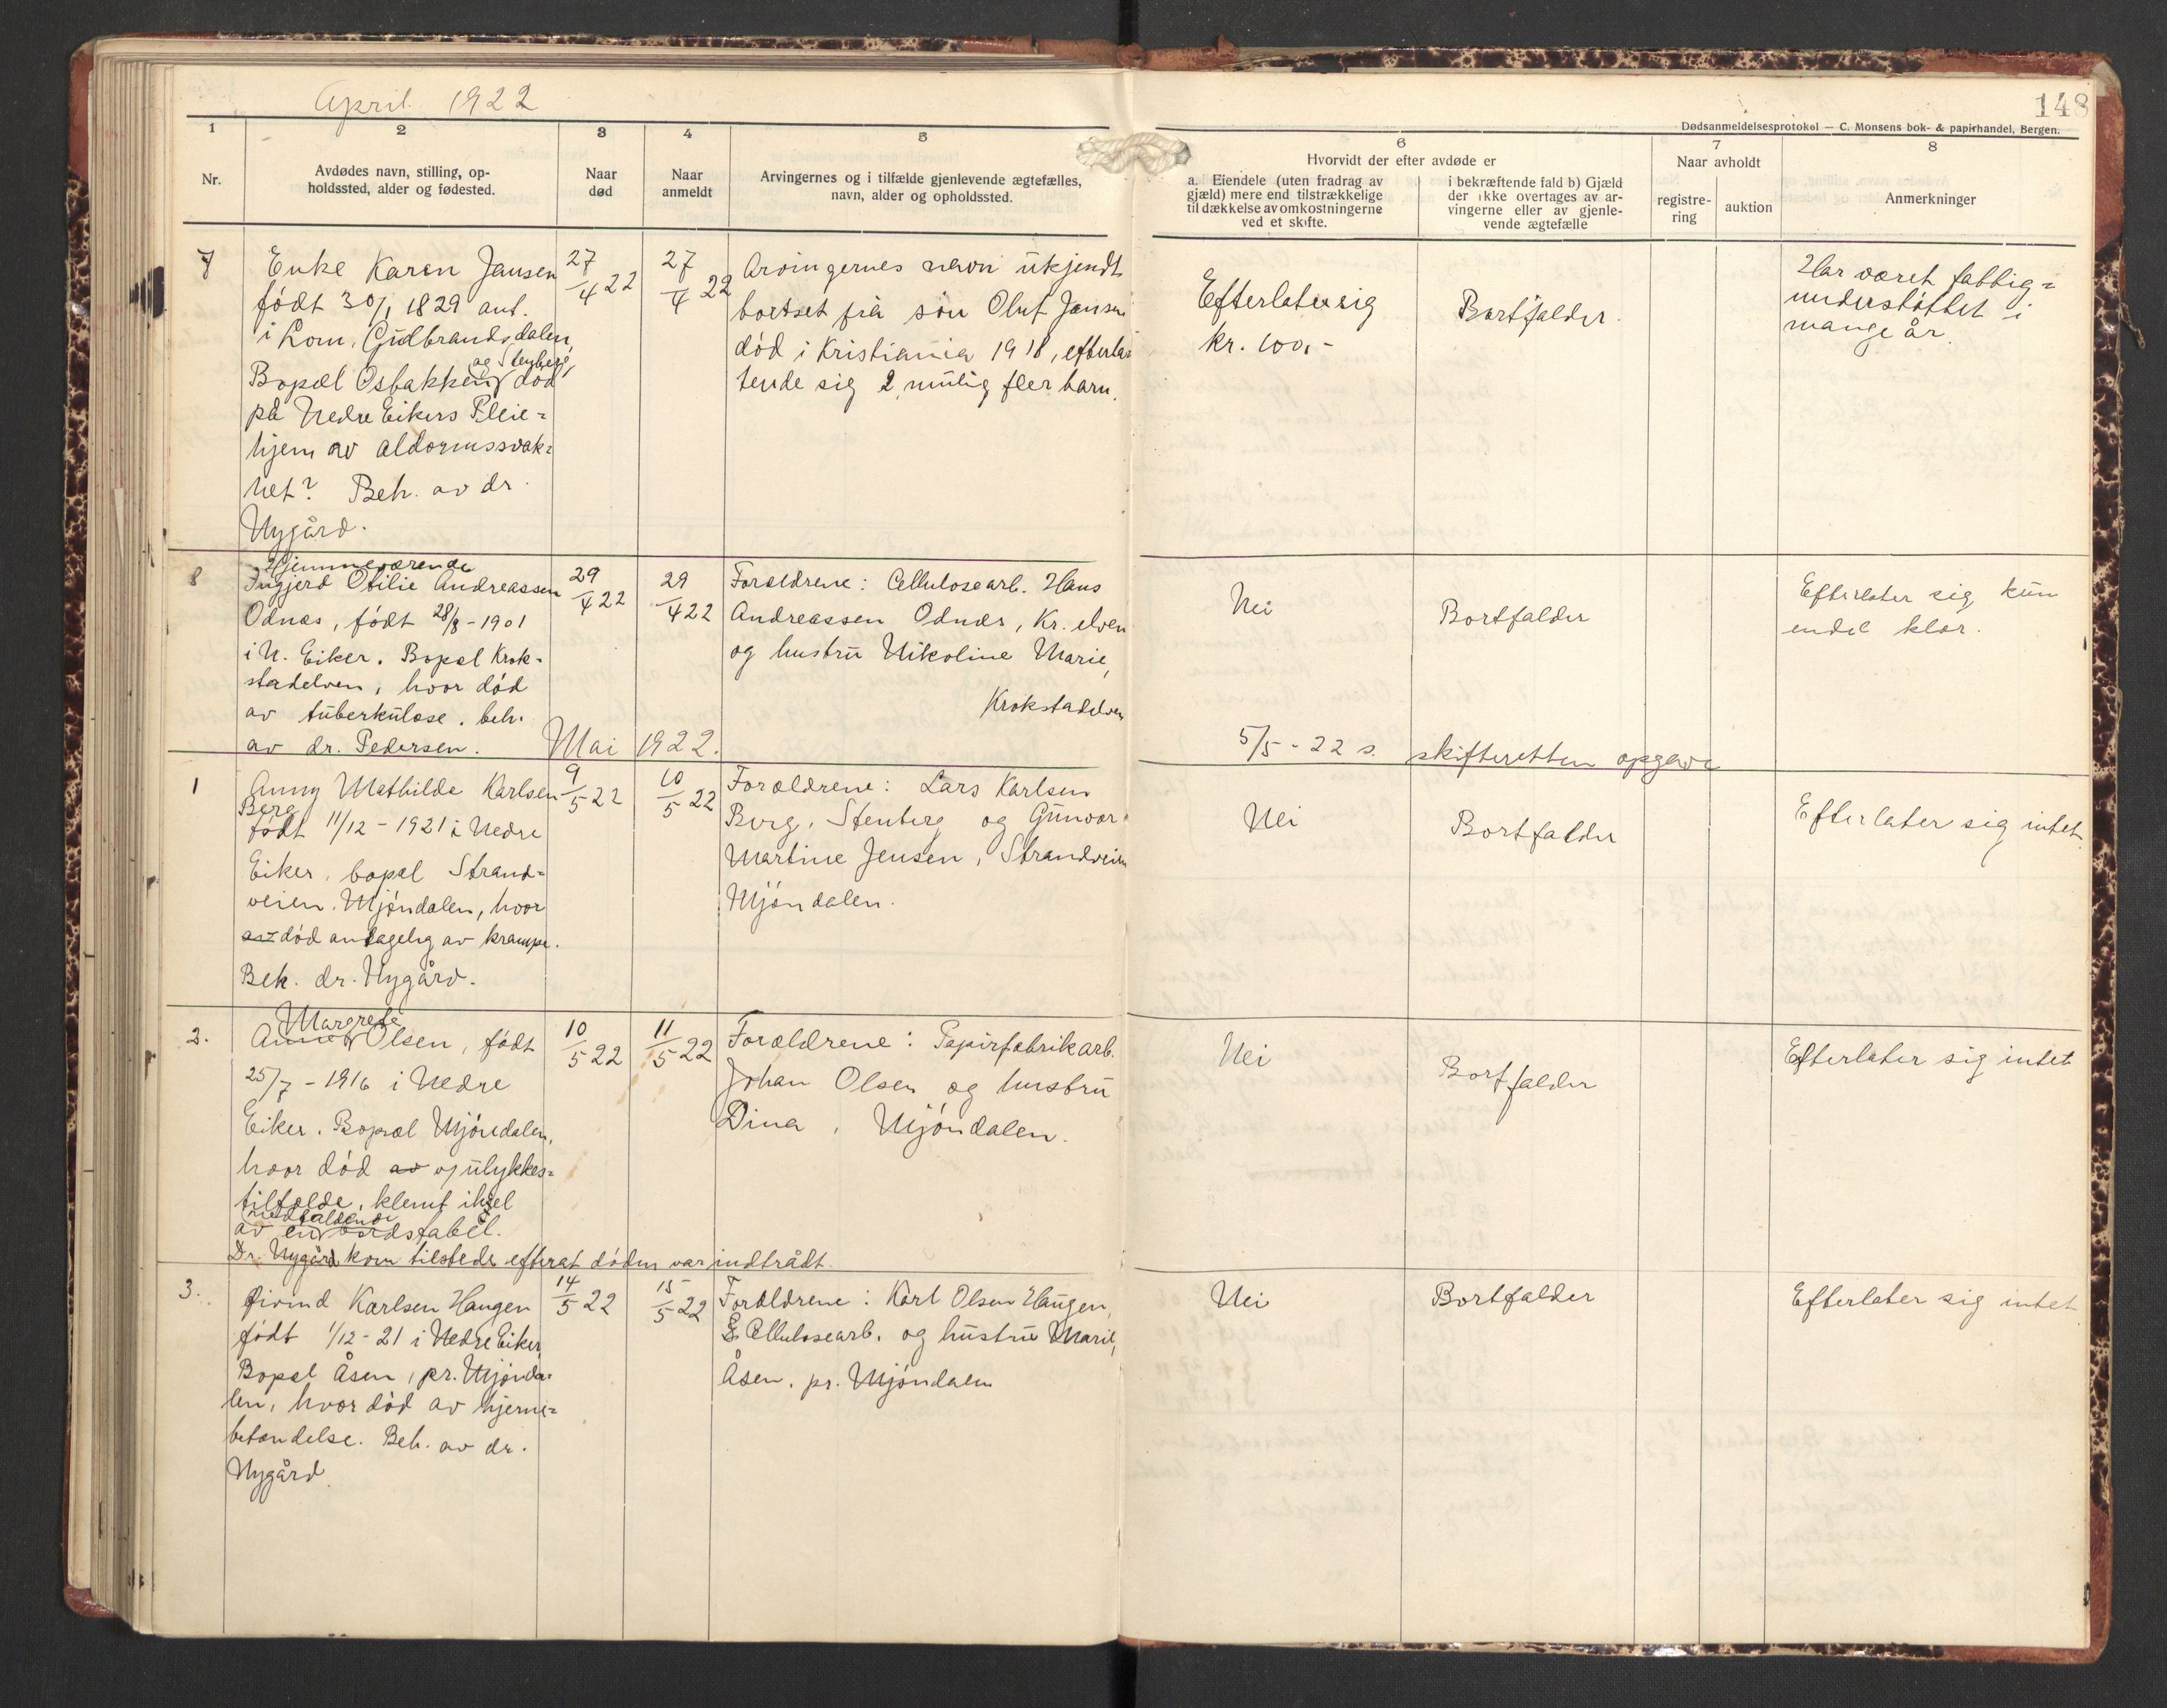 April 1922
148
Dødsanmeldelsesprotokol — C. Monsens bok- & papirhandel, Bergen.
1
2
3
4
5
6
7
8
Nr.
Avdødes navn, stilling, op-
holdssted, alder og fødested.
Naar
død
Naar
anmeldt
Arvingernes og i tilfælde gjenlevende ægtefælles,
navn, alder og opholdssted.
Hvorvidt der efter avdøde er
a. Eiendele (uten fradrag av
gjæld) mere end tilstrækkelige
til dækkelse av omkostningerne
ved et skifte.
i bekræftende fald b) Gjæld
der ikke overtages av ar-
vingerne eller av gjenle-
vende ægtefælle
Naar avholdt
registre-
ring
auktion
Anmerkninger
7
Enke Karen Jansen
født 30/1 1829 ant.
i Lom, Gudbrandsdalen,
og Stenberg,
Bopæl Osbakken død
på Nedre Eikers Pleie=
hjem av aldomssvak=
het? Beh. av dr.
Nygård.
27/4 22
27/4 22
Arvingernes navn ukjendt
bortset frå søn Oluf Jansen
død i Kristiania 1918, efterla
tende sig 2, mulig fler barn.
Efterlater sig
kr. 100,-
Bortfalder.
Har været fattig=
understøttet i
mange år.
8
Hjemmeværende
Ingjerd Otilie Andreassen
Odnæs, født 28/8-1901
i N. Eiker. Bopæl Krok-
stadelven, hvor død
av tuberkulose. beh.
av dr. Pedersen.
29/4 22
29/4 22
Forældrene: Cellulosearb. Hans
Andreassen Odnæs, Kr. elven
og hustru Nikoline Marie,
Krokstadelven
Nei
Bortfalder
Efterlater sig kun
endel klær.
Mai 1922.
5/5-22 s. skifteretten opgave
1
Anny Mathilde Karlsen
Berg
født 11/12-1921 i Nedre
Eiker, bopæl Strand=
veien, Mjøndalen, hvor
av død antagelig av krampe.
Beh. dr. Nygård.
9/5 22
10/5 22
Forældrene: Lars Karlsen
Berg, Stenberg og Gunvor
Martine Jensen, Strandveien
Mjøndalen.
Nei
Bortfalder
Efterlater sig intet.
2.
Margrete
Anne Olsen, født
25/7-1916 i Nedre
Eiker. Bopæl Mjøndalen,
hvor død av v/ulykkes=
tilfælde, klemt ihjel
nedfaldende
av en bordstabel.
Dr. Nygård kom tilstede efterat døden var indtrådt.
10/5 22
11/5 22
Forældrene: Papirfabrikarb.
Johan Olsen og hustru
Dina, Mjøndalen.
Nei
Bortfalder
Efterlater sig intet
3.
Øivind Karlsen Haugen
født 1/12-21 i Nedre Eiker
Bopæl Åsen, pr. Mjønda=
len, hvor død av hjerne=
betændelse. Beh. av dr.
Nygård
14/5 22
15/5 22
Forældrene: Karl Olsen Haugen,
Cellulosearb. og hustru Marie,
Åsen, pr. Mjøndalen
Nei
Bortfalder
Efterlater sig intet